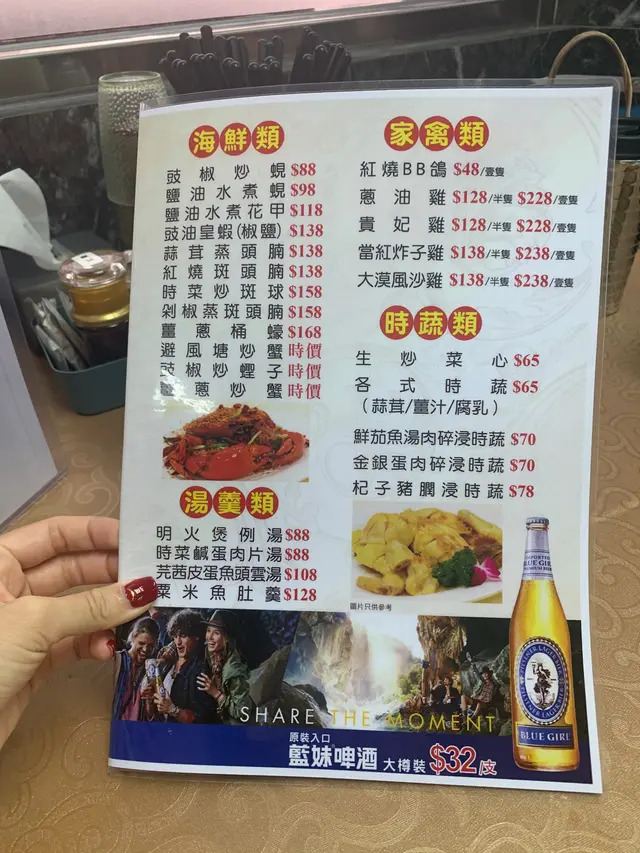 海鮮類
豉椒炒蜆 $88
鹽油水煮蜆 $98
鹽油水煮花甲 $118
豉油皇蝦(椒鹽) $138
蒜茸蒸頭腩 $138
紅燒斑頭腩 $138
時菜炒斑球 $158
剁椒蒸斑頭腩 $158
薑蔥桶蠔 $168
避風塘炒蟹 時價
豉椒炒蟶子 時價
薑蔥炒蟹 時價
湯羹類
明火煲例湯 $88
時菜鹹蛋肉片湯 $88
芫茜皮蛋魚頭雲湯 $108
粟米魚肚羹 $128
家禽類
紅燒BB鴿 $48/壹隻
蔥油雞 $128/半隻 $228/壹隻
貴妃雞 $128/半隻 $228/壹隻
當紅炸子雞 $138/半隻 $238/壹隻
大漠風沙雞 $138/半隻 $238/壹隻
時蔬類
生炒菜心 $65
各式時蔬 $65
(蒜茸/薑汁/腐乳)
鮮茄魚湯肉碎浸時蔬 $70
金銀蛋肉碎浸時蔬 $70
杞子豬膶浸時蔬 $78
圖片只供參考
SHARE THE MOMENT
原裝入口
藍妹啤酒 大樽裝 $32/支
BLUE GIRL
BLUE GIRL